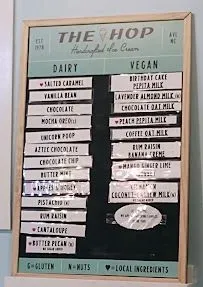 EST
1978
THE HOP
Handcrafted Ice Cream
AVL
NC
DAIRY
♥ SALTED CARAMEL
VANILLA BEAN
CHOCOLATE
MOCHA OREO(G)
UNICORN POOP
AZTEC CHOCOLATE
CHOCOLATE CHIP
BUTTER MINT
APPLES & HONEY
PISTACHIO (N)
RUM RAISIN
♥ CANTALOUPE
♥ BUTTER PECAN (N)
VEGAN
BIRTHDAY CAKE
PEPITA MILK
LAVENDER ALMOND MILK (N)
CHOCOLATE OAT MILK
♥ PEACH PEPITA MILK
COFFEE OAT MILK
RUM RAISIN
BANANA CREME
♥ MANGO GINGER LIME
COCONUT CASHEW MILK(N)
G=GLUTEN N=NUTS ♥=LOCAL INGREDIENTS